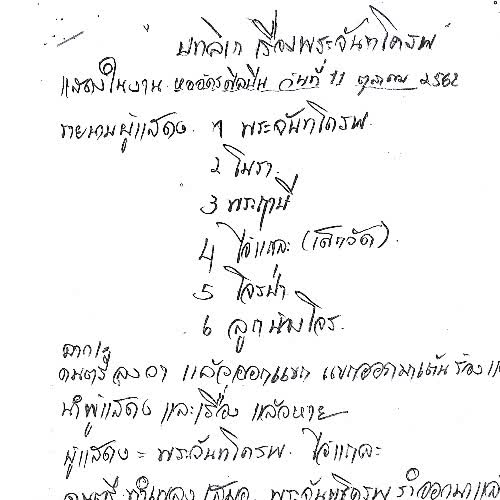 บทลิเก เรื่องพระจันทโครพ
แสดงในงาน หออัครศิลปิน วันที่ 11 ตุลาคม 2562
รายนามผู้แสดง 1 พระจันทโครพ
2 โมรา
3 พระฤาษี
4 ไอ้แกละ (เด็กวัด)
5 โจรป่า
6 ลูกน้องโจร
ฉาก 1
ดนตรี ลงวา แล้วออกแขก แขกออกมาเต้น ร้อง
นำผู้แสดง และเรื่อง แล้วหาย
ผู้แสดง = พระจันทโครพ ไอ้แกละ
ดนตรี ทำเพลง เสมอ พระจันทโครพ รำออกมา